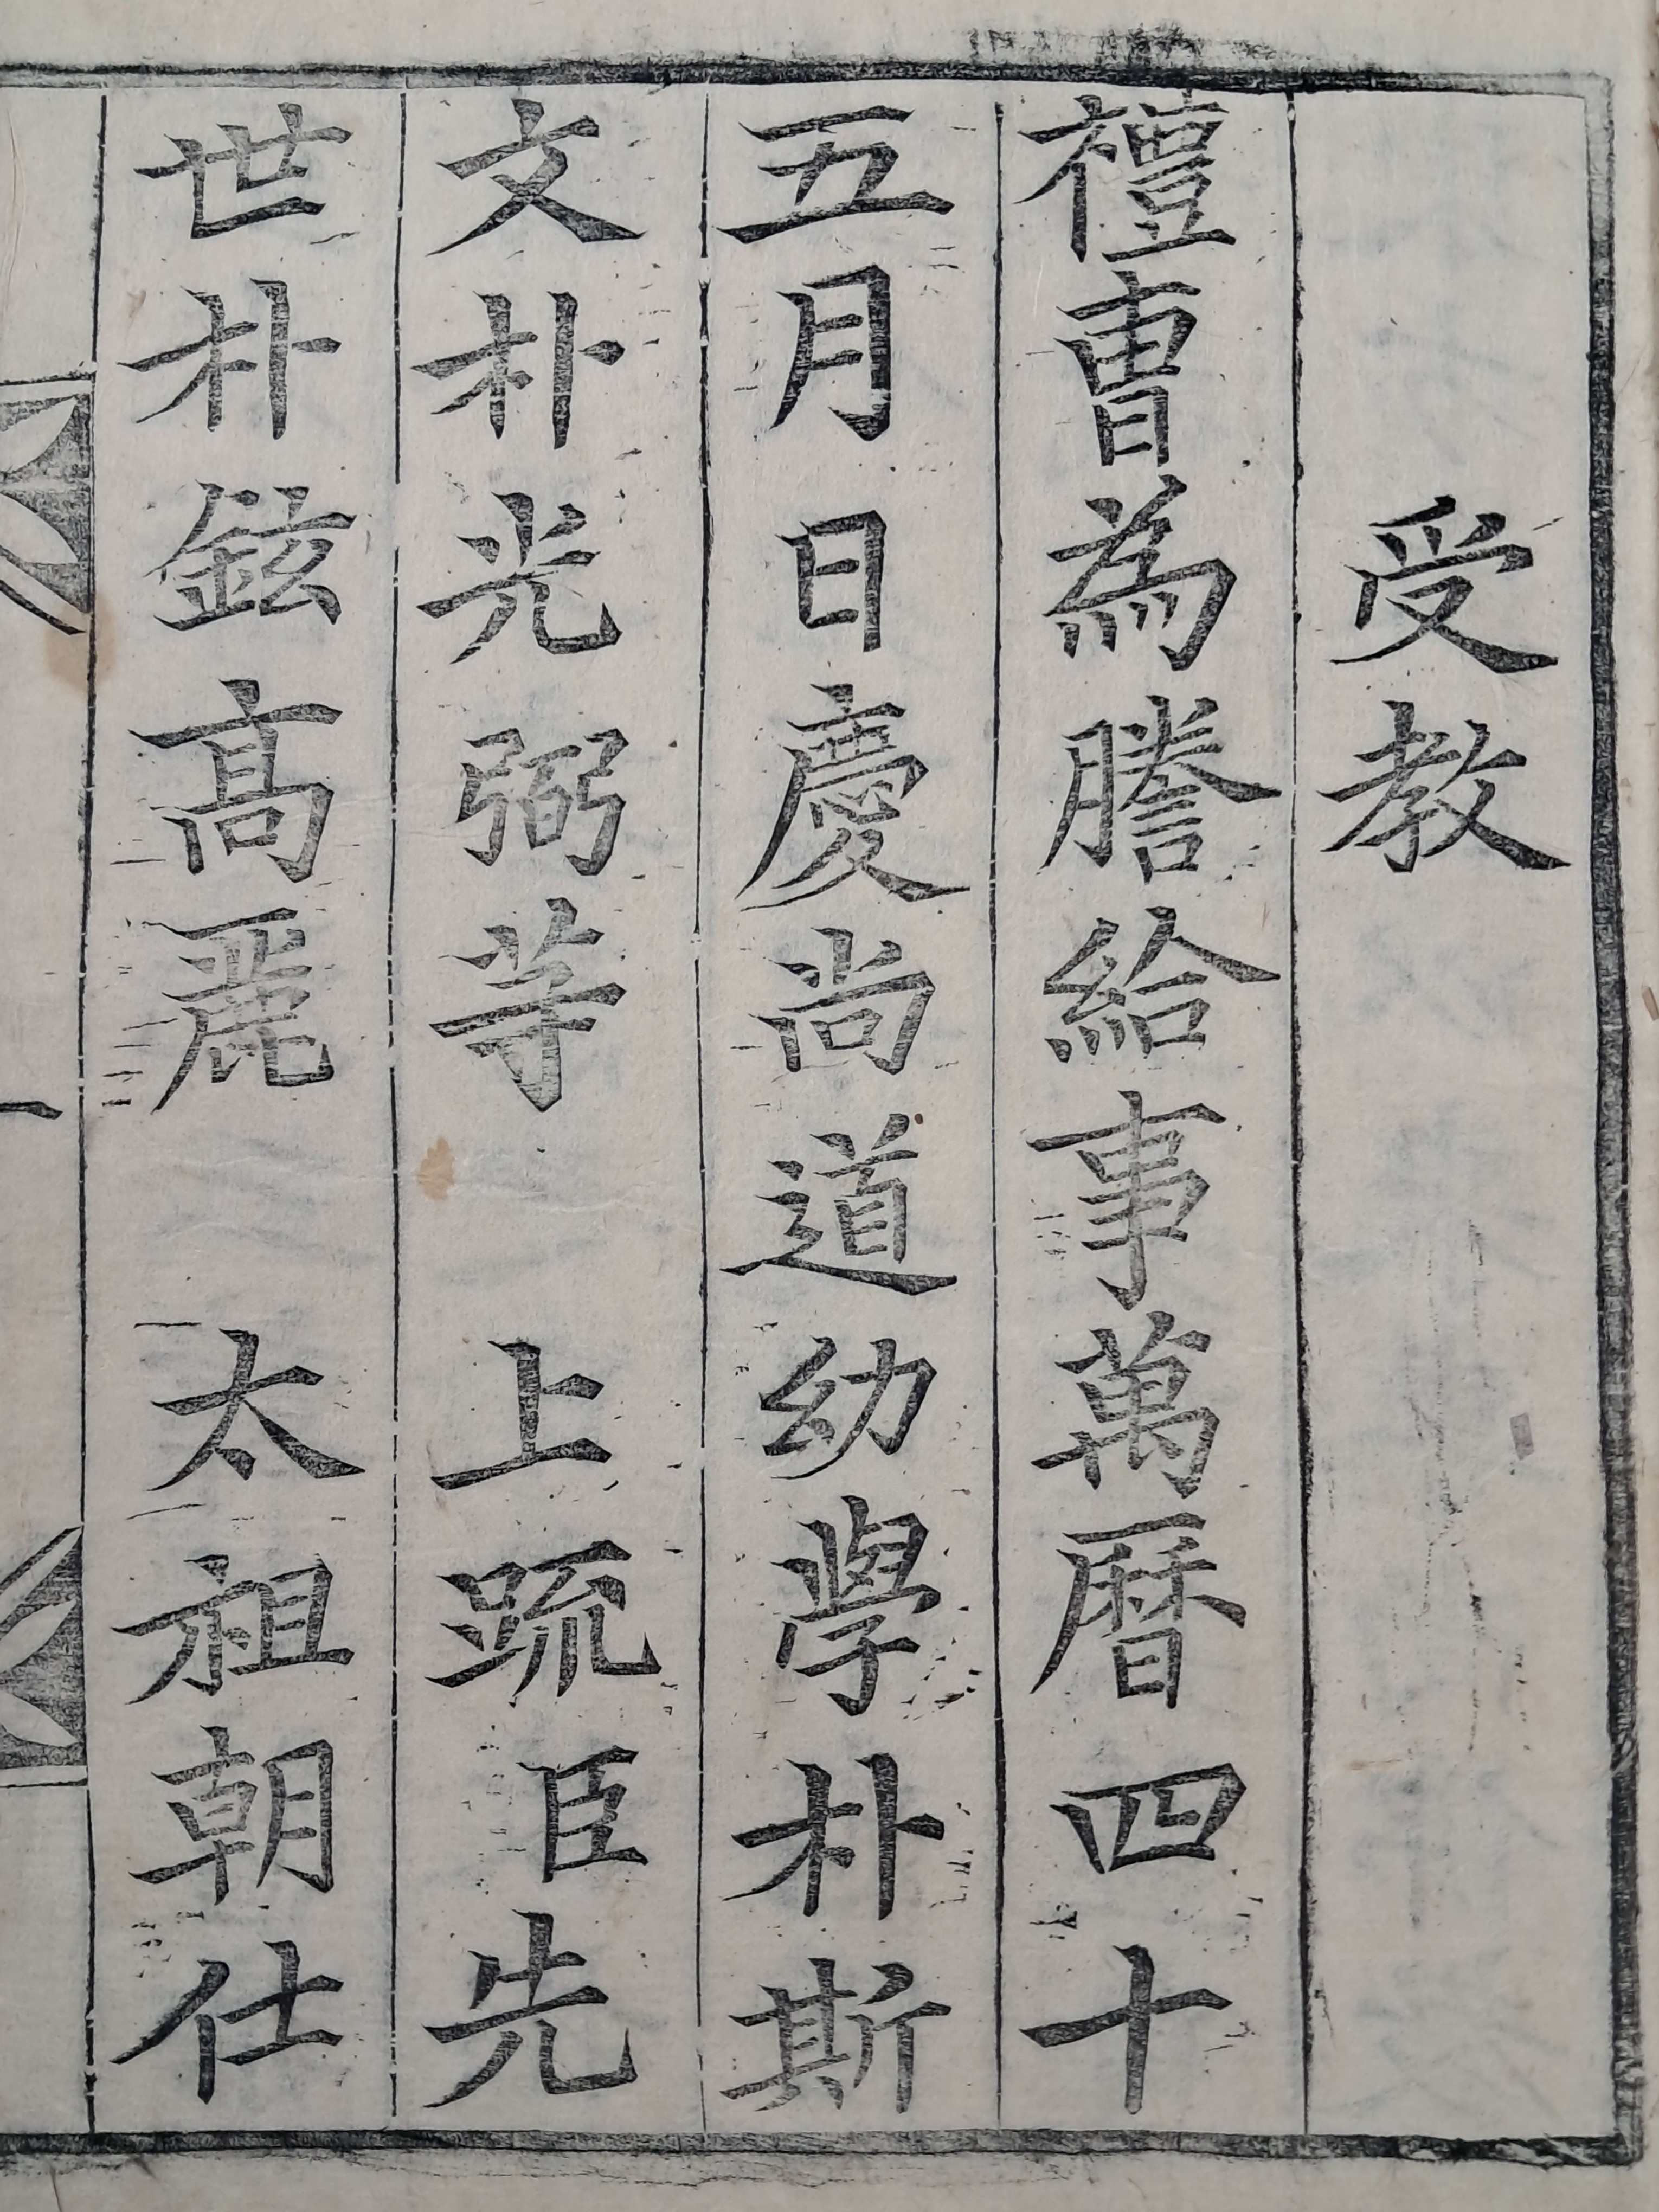 受教
禮曺為謄給事萬曆四十
五月日慶尙道幼學朴斯
文朴光弼等 上疏臣先
世朴鉉高麗 太祖朝仕